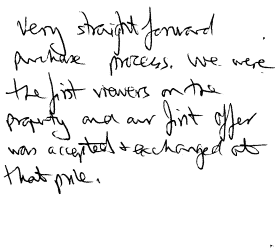 Very straight forward
purchase process. We were
the first viewers on the
property and our first offer
was accepted & exchanged at
that price.